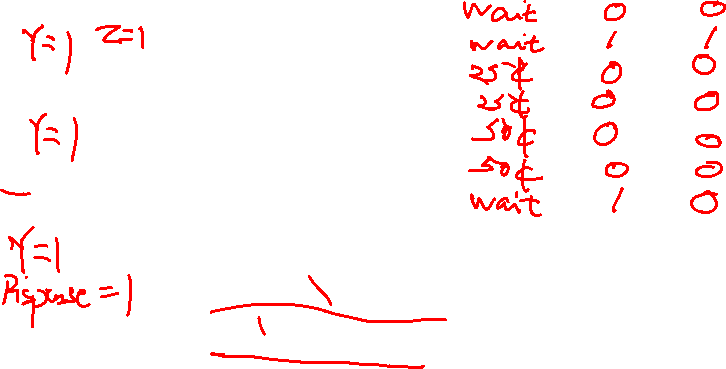 Y=1 Z=1
Y=1
Y=1
Rispose=1
wait 0 0
wait 1 1
25¢ 0 0
25¢ 0 0
50¢ 0 0
50¢ 0 0
wait 1 0